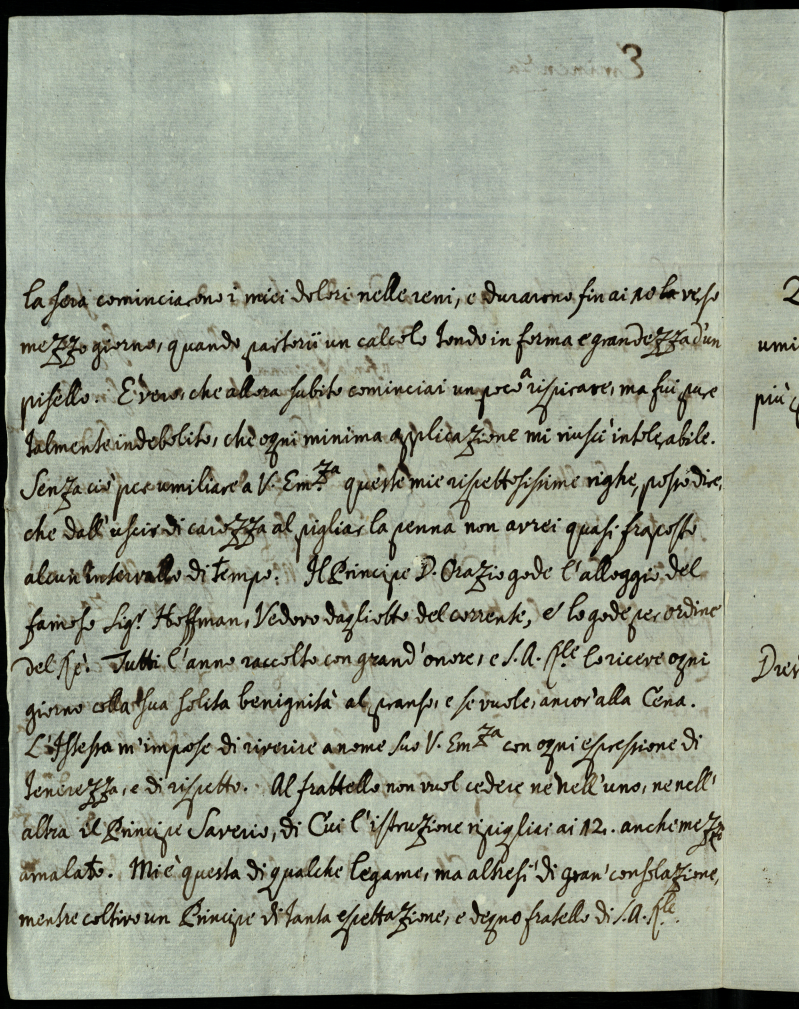 la sera cominciarono i miei dolori nelle reni, e durarono fin ai 10 verso
mezzo giorno, quando partorij un calcolo tondo in forma e grandezza d'un
pisello. È vero, che allora subito cominciai un poco a rispirare, ma fui pure
talmente indebolito, che ogni minima applicazione mi riuscì intolerabile.
Senza ciò per umiliare a V. Em.za queste mie rispettosissime righe, posso dire,
che dall'uscir di carozza al pigliar la penna non avrei quasi fraposto
alcun intervallo di tempo. Il Principe D. Orazio gode l'alloggio del
famoso Sigr. Hoffman, Vedovo dagli otto del corrente, e lo gode per ordine
del Rè. Tutti l'anno raccolto con grand'onore, e S. A. Rle lo riceve ogni
giorno colla sua solita benignità al pranso, e se vuole, ancor'alla Cena.
L'Istessa m'impose di riverire a nome suo V. Em.za con ogni espressione di
tenerezza, e di rispetto. Al frattello non vuol cedere nè nell'uno, ne nell'
altra il Principe Saverio, di Cui l'istruzione ripigliai ai 12. anche mezzo
amalato. Mi è questa di qualche legame, ma altresì di gran' consolazione,
mentre coltivo un Principe di tanta espettazione, e degno fratello di S. A. Rle.
umi
più